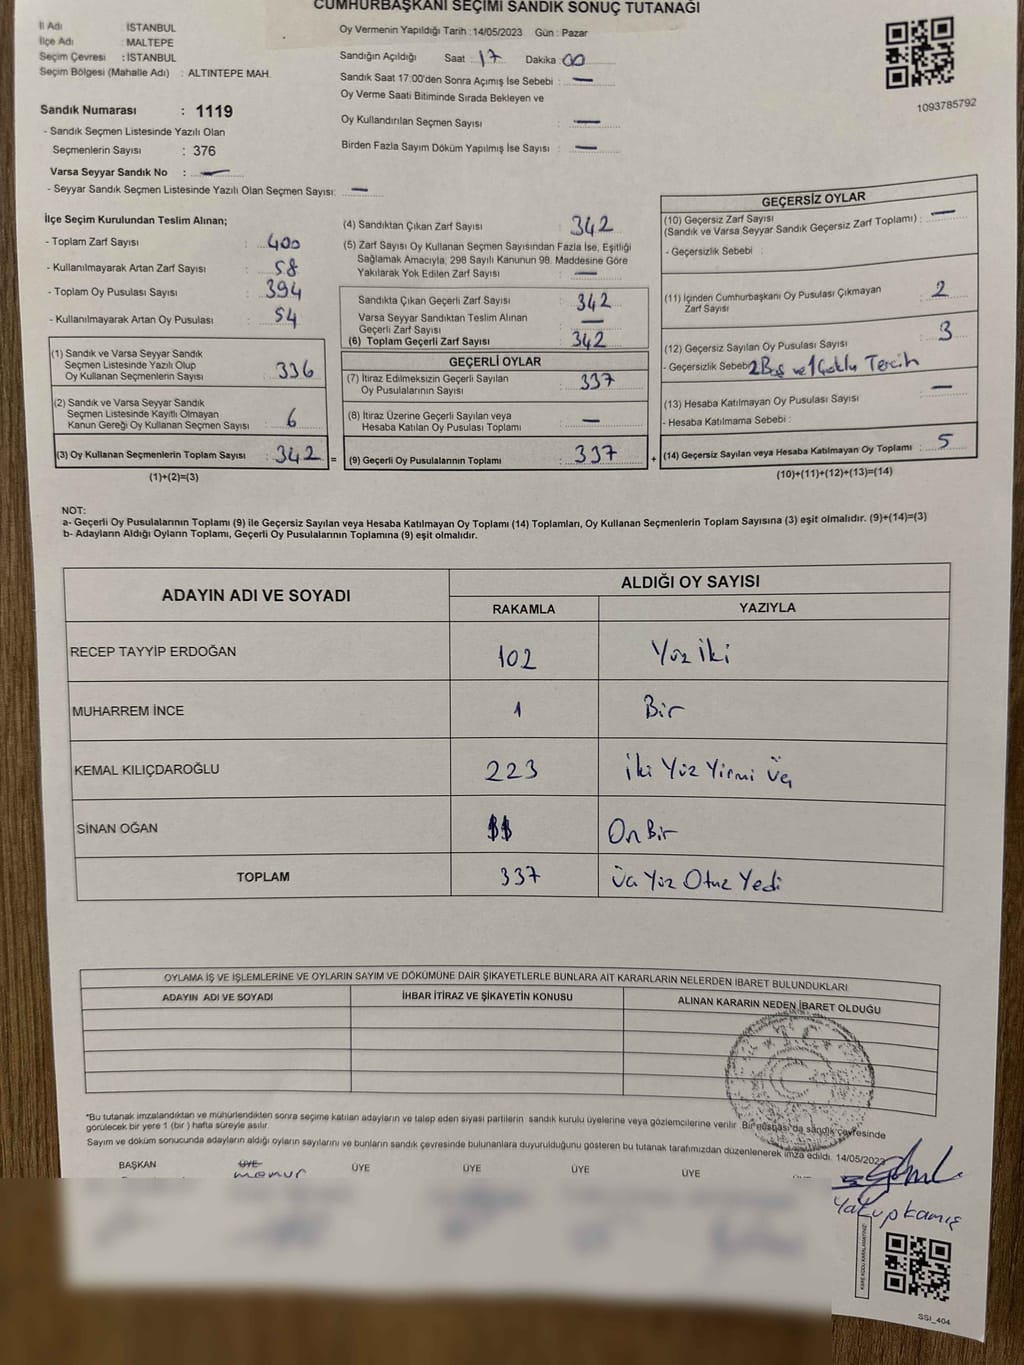 CUMHURBAŞKANI SEÇİMİ SANDIK SONUÇ TUTANAĞI
İl Adı : İSTANBUL
İlçe Adı : MALTEPE
Seçim Çevresi : İSTANBUL
Seçim Bölgesi (Mahalle Adı) : ALTINTEPE MAH.
Sandık Numarası : 1119
- Sandık Seçmen Listesinde Yazılı Olan
Seçmenlerin Sayısı : 376
Varsa Seyyar Sandık No : —
- Seyyar Sandık Seçmen Listesinde Yazılı Olan Seçmen Sayısı: —
Oy Vermenin Yapıldığı Tarih : 14/05/2023 Gün : Pazar
Sandığın Açıldığı Saat 17 Dakika 00
Sandık Saat 17:00'den Sonra Açımış İse Sebebi : —
Oy Verme Saati Bitiminde Sırada Bekleyen ve
Oy Kullandırılan Seçmen Sayısı : —
Birden Fazla Sayım Döküm Yapılmış İse Sayısı : —
1093785792
İlçe Seçim Kurulundan Teslim Alınan;
- Toplam Zarf Sayısı : 400
- Kullanılmayarak Artan Zarf Sayısı : 58
- Toplam Oy Pusulası Sayısı : 394
- Kullanılmayarak Artan Oy Pusulası : 54
(1) Sandık ve Varsa Seyyar Sandık
Seçmen Listesinde Yazılı Olup
Oy Kullanan Seçmenlerin Sayısı : 336
(2) Sandık ve Varsa Seyyar Sandık
Seçmen Listesinde Kayıtlı Olmayan
Kanun Gereği Oy Kullanan Seçmen Sayısı : 6
(3) Oy Kullanan Seçmenlerin Toplam Sayısı : 342
(1)+(2)=(3)
(4) Sandıktan Çıkan Zarf Sayısı : 342
(5) Zarf Sayısı Oy Kullanan Seçmen Sayısından Fazla İse, Eşitliği
Sağlamak Amacıyla, 298 Sayılı Kanunun 98. Maddesine Göre
Yakılarak Yok Edilen Zarf Sayısı : —
Sandıkta Çıkan Geçerli Zarf Sayısı : 342
Varsa Seyyar Sandıktan Teslim Alınan
Geçerli Zarf Sayısı : —
(6) Toplam Geçerli Zarf Sayısı : 342
GEÇERLİ OYLAR
(7) İtiraz Edilmeksizin Geçerli Sayılan
Oy Pusulalarının Sayısı : 337
(8) İtiraz Üzerine Geçerli Sayılan veya
Hesaba Katılan Oy Pusulası Toplamı : —
= (9) Geçerli Oy Pusulalarının Toplamı : 337
GEÇERSİZ OYLAR
(10) Geçersiz Zarf Sayısı
(Sandık ve Varsa Seyyar Sandık Geçersiz Zarf Toplamı) : —
- Geçersizlik Sebebi :
(11) İçinden Cumhurbaşkanı Oy Pusulası Çıkmayan
Zarf Sayısı : 2
(12) Geçersiz Sayılan Oy Pusulası Sayısı : 3
- Geçersizlik Sebebi 2 Boş ve 1 Çoklu Tercih
(13) Hesaba Katılmayan Oy Pusulası Sayısı : —
- Hesaba Katılmama Sebebi :
+ (14) Geçersiz Sayılan veya Hesaba Katılmayan Oy Toplamı : 5
(10)+(11)+(12)+(13)=(14)
NOT:
a- Geçerli Oy Pusulalarının Toplamı (9) ile Geçersiz Sayılan veya Hesaba Katılmayan Oy Toplamı (14) Toplamları, Oy Kullanan Seçmenlerin Toplam Sayısına (3) eşit olmalıdır. (9)+(14)=(3)
b- Adayların Aldığı Oyların Toplamı, Geçerli Oy Pusulalarının Toplamına (9) eşit olmalıdır.
ADAYIN ADI VE SOYADI ALDIĞI OY SAYISI
RAKAMLA YAZIYLA
RECEP TAYYİP ERDOĞAN 102 Yüz İki
MUHARREM İNCE 1 Bir
KEMAL KILIÇDAROĞLU 223 İki Yüz Yirmi Üç
SİNAN OĞAN 11 On Bir
TOPLAM 337 Üç Yüz Otuz Yedi
OYLAMA İŞ VE İŞLEMLERİNE VE OYLARIN SAYIM VE DÖKÜMÜNE DAİR ŞİKAYETLERLE BUNLARA AİT KARARLARIN NELERDEN İBARET BULUNDUKLARI
ADAYIN ADI VE SOYADI İHBAR İTİRAZ VE ŞİKAYETİN KONUSU ALINAN KARARIN NEDEN İBARET OLDUĞU
*Bu tutanak imzalandıktan ve mühürlendikten sonra seçime katılan adayların ve talep eden siyasi partilerin sandık kurulu üyelerine veya gözlemcilerine verilir. Bir nüshası da sandık çevresinde
görülecek bir yere 1 (bir) hafta süreyle asılır.
Sayım ve döküm sonucunda adayların aldığı oyların sayılarını ve bunların sandık çevresinde bulunanlara duyurulduğunu gösteren bu tutanak tarafımızdan düzenlenerek imza edildi. 14/05/2023
BAŞKAN ÜYE ÜYE ÜYE ÜYE ÜYE
memur
Yakup kamış
SSI_404